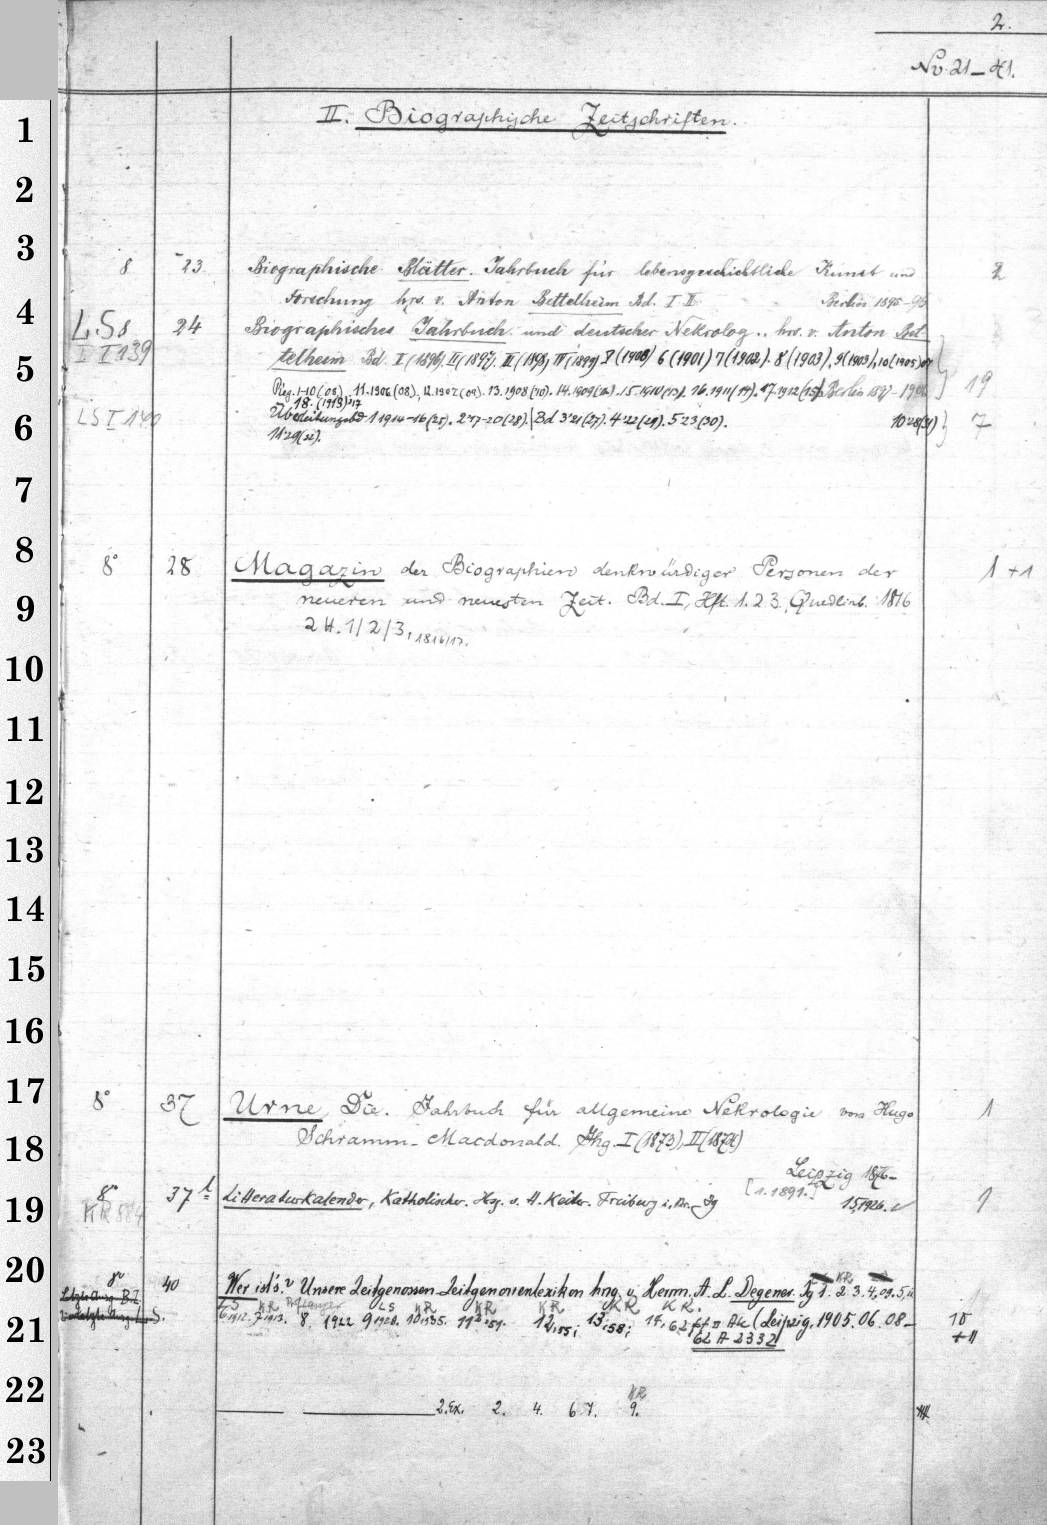 2.
No 21-41.
1 II. Biographische Zeitschriften.
2
3 8 23 Biographische Blätter. Jahrbuch für lebensgeschichtliche Kunst und 2
Forschung hrs. v. Anton Bettelheim Bd. I II Berlin 1895-96
4 L.S 8 24 Biographisches Jahrbuch und deutscher Nekrolog.. hrs. v. Anton Bet-
5 I 139 telheim Bd. 6 (1901) 7 (1902). 8 (1903), 9 (1903), 10 (1905) 19
Reg. 1-10 (08), 11. 1906 (08), 12. 1907 (09). 13. 1908 (10). 14. 1909 15 1910 16. 1911 (14). 17. 1912 Berlin
18. (1913) 17
6 LS I 140 1 1914-16 (25). 2 17-20 (28). Bd 3 21 (27). 4 22 (29). 5 23 (30). 10 28 (31) 7
11 29
7
8 8° 28 Magazin der Biographien denkwürdiger Personen der 1 + 1
9 neueren und neuesten Zeit. Bd. I, Hft. 1. 2. 3. Quedlinb. 1816
2 H. 1/2/3, 1816/17.
10
11
12
13
14
15
16
17 8° 37 Urne, Die. Jahrbuch für allgemeine Nekrologie von Hugo 1
18 Schramm-Macdonald. Jhg. I (1873), II
Leipzig
[1. 1891.]
19 8° 37 Litteraturkalender, Katholischer. Hsg. v. H. Keiter. Freiburg i. Br. Jg 15, 1926. 1
KR 884
20 8° 40 Wer ist's? Unsere Zeitgenossen Zeitgenossenlexikon hrsg. v. Herm. A. L. Degener. Jg 1. 2. 3. 4, 09. 5, 11
KR
LS KR LS KR KR KR KR KR.
21 6 1912. 7 1913. 8, 1922 9 1928. 10 1935. 12, 55; 13, 58; 14, 62 (Leipzig, 1905. 06. 08- 15
62 A 2332 + 11
22 2. Ex. 2. 4. 6 7. 9.
KR
23